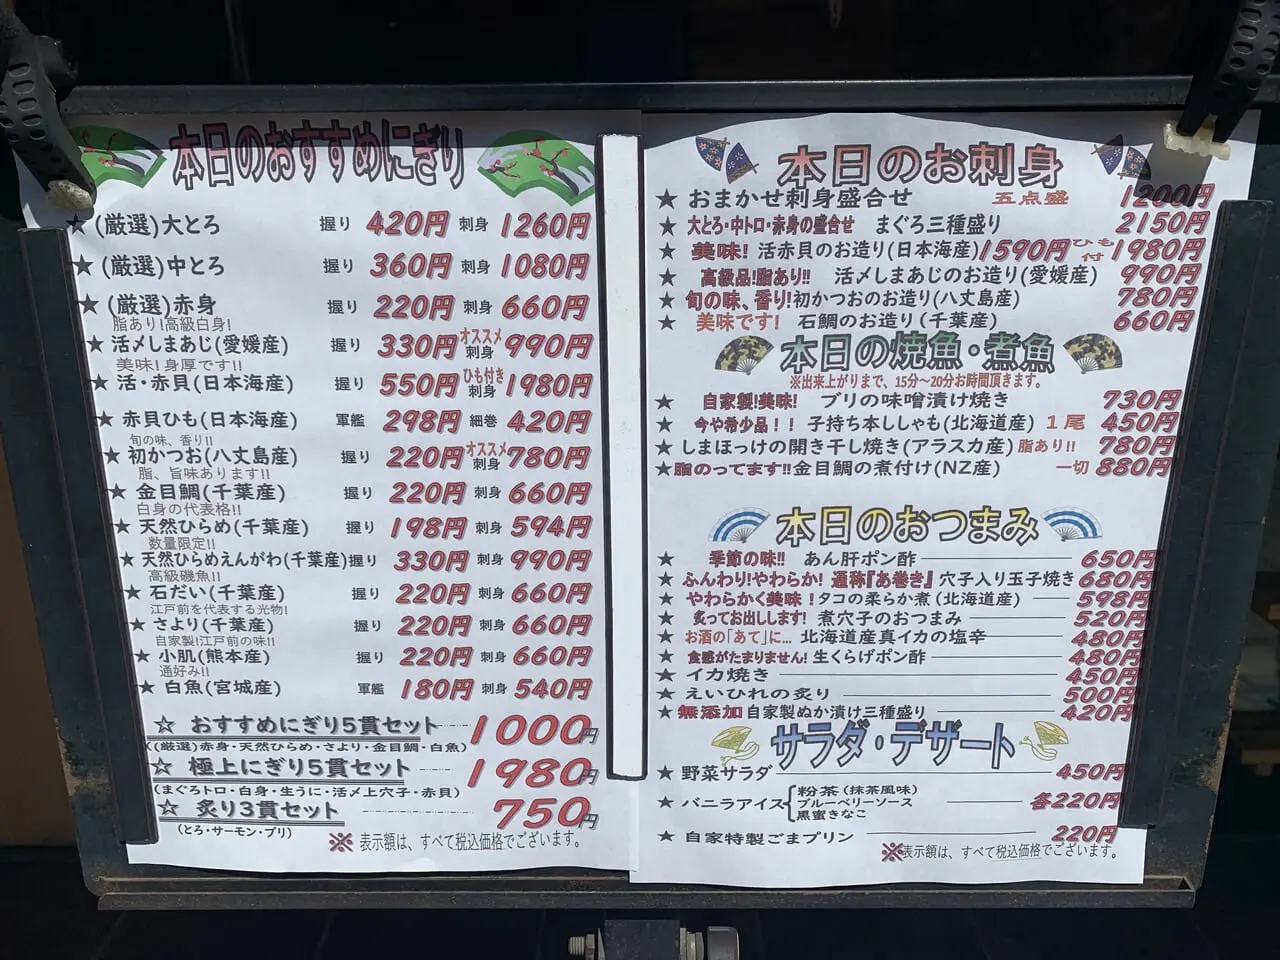 本日のおすすめにぎり
★ (厳選)大とろ 握り 420円 刺身 1260円
★ (厳選)中とろ 握り 360円 刺身 1080円
★ (厳選)赤身 握り 220円 刺身 660円
脂あり!高級白身!
★ 活〆しまあじ(愛媛産) 握り 330円 オススメ 刺身 990円
美味!身厚です!!
★ 活・赤貝(日本海産) 握り 550円 ひも付き 刺身 1980円
★ 赤貝ひも(日本海産) 軍艦 298円 細巻 420円
旬の味、香り!!
★ 初かつお(八丈島産) 握り 220円 オススメ 刺身 780円
脂、旨味あります!!
★ 金目鯛(千葉産) 握り 220円 刺身 660円
白身の代表格!!
★ 天然ひらめ(千葉産) 握り 198円 刺身 594円
数量限定!!
★ 天然ひらめえんがわ(千葉産) 握り 330円 刺身 990円
高級磯魚!!
★ 石だい(千葉産) 握り 220円 刺身 660円
江戸前を代表する光物!
★ さより(千葉産) 握り 220円 刺身 660円
自家製!江戸前の味!!
★ 小肌(熊本産) 握り 220円 刺身 660円
通好み!!
★ 白魚(宮城産) 軍艦 180円 刺身 540円
☆ おすすめにぎり5貫セット 1000円
((厳選)赤身・天然ひらめ・さより・金目鯛・白魚)
☆ 極上にぎり5貫セット 1980円
(まぐろトロ・白身・生うに・活〆上穴子・赤貝)
☆ 炙り3貫セット 750円
(とろ・サーモン・ブリ)
※ 表示額は、すべて税込価格でございます。
本日のお刺身
★ おまかせ刺身盛合せ 五点盛 1200円
★ 大とろ・中トロ・赤身の盛合せ まぐろ三種盛り 2150円
★ 美味! 活赤貝のお造り(日本海産) 1590円 ひも付 1980円
★ 高級品!脂あり!! 活〆しまあじのお造り(愛媛産) 990円
★ 旬の味、香り!初かつおのお造り(八丈島産) 780円
★ 美味です! 石鯛のお造り(千葉産) 660円
本日の焼魚・煮魚
※出来上がりまで、15分〜20分お時間頂きます。
★ 自家製!美味! ブリの味噌漬け焼き 730円
★ 今や希少品!! 子持ち本ししゃも(北海道産) 1尾 450円
★ しまほっけの開き干し焼き(アラスカ産) 脂あり!! 780円
★脂のってます!!金目鯛の煮付け(NZ産) 一切 880円
本日のおつまみ
★ 季節の味!! あん肝ポン酢 650円
★ ふんわり!やわらか! 通称『あ巻き』 穴子入り玉子焼き 680円
★ やわらかく美味!タコの柔らか煮(北海道産) 598円
★ 炙ってお出しします! 煮穴子のおつまみ 520円
★ お酒の「あて」に… 北海道産真イカの塩辛 480円
★ 食感がたまりません! 生くらげポン酢 480円
★ イカ焼き 450円
★ えいひれの炙り 500円
★ 無添加 自家製ぬか漬け三種盛り 420円
サラダ・デザート
★ 野菜サラダ 450円
粉茶(抹茶風味)
★ バニラアイス ブルーベリーソース 各220円
黒蜜きなこ
★ 自家特製ごまプリン 220円
※表示額は、すべて税込価格でございます。